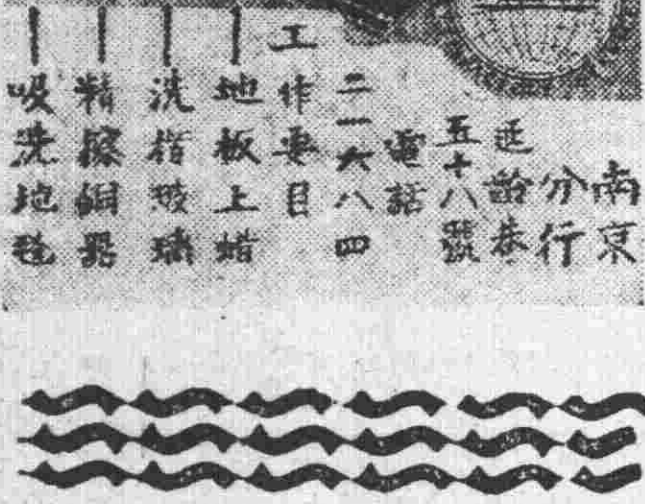 南京
分行
延齡巷
五十八號
電話
二一六八四
工作要目
地板上蜡
洗揩玻璃
精擦銅器
吸洗地毯